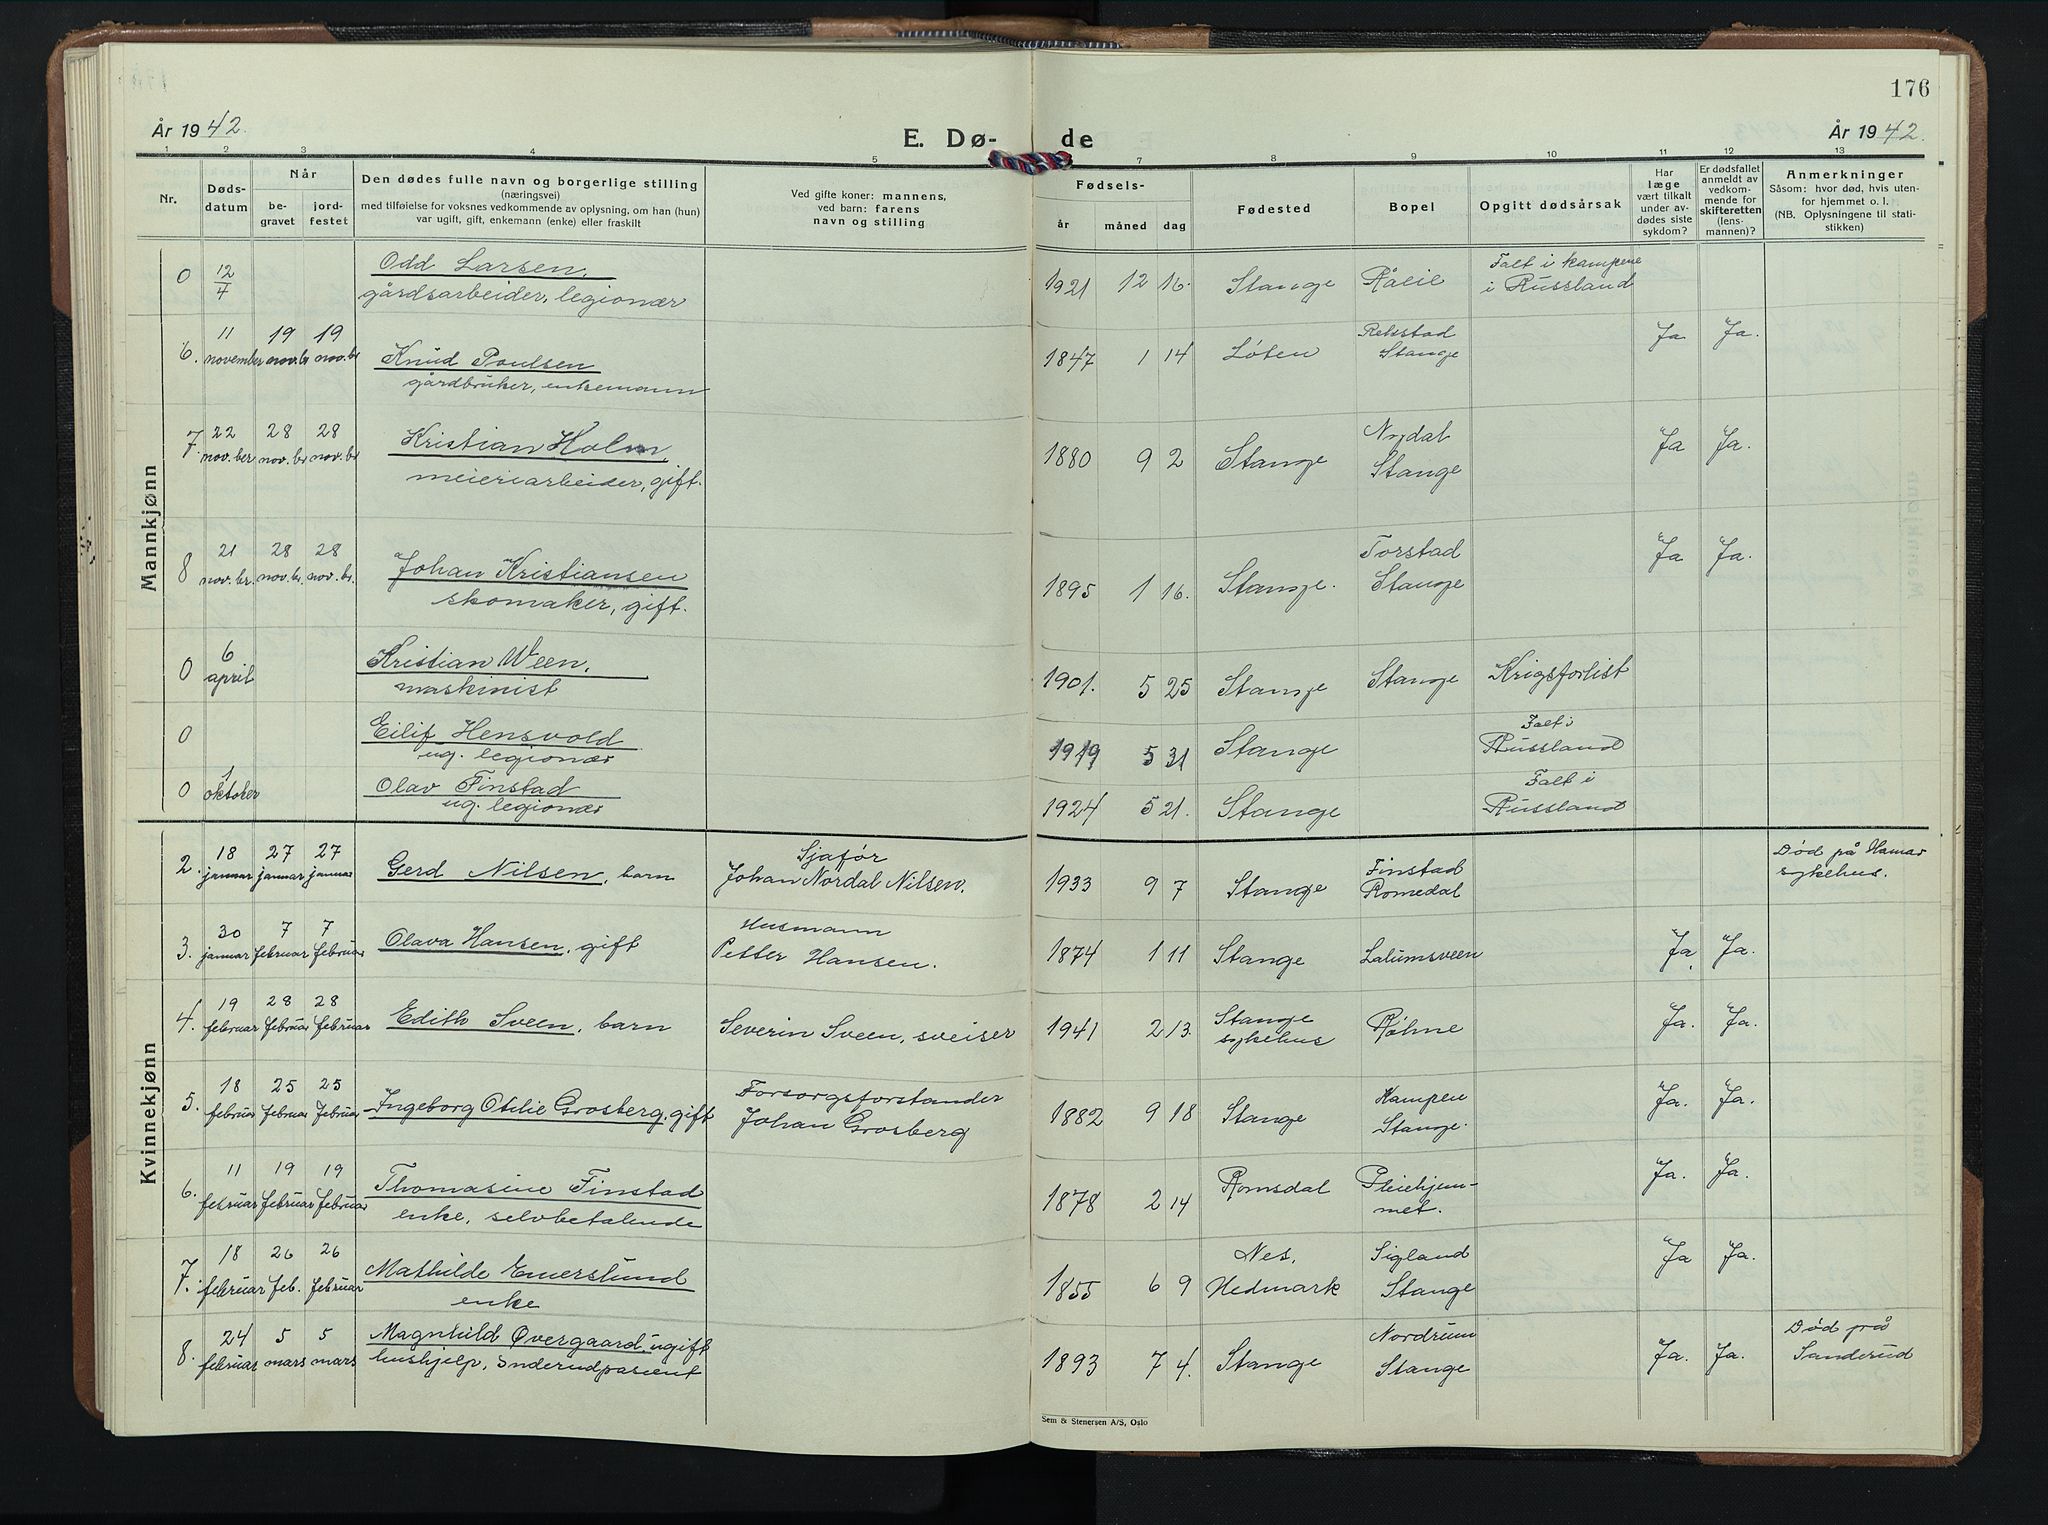 176
År 1942.
E. Dø- de
År 1942.
1 2 3 4 5 7 8 9 10 11 12 13
Nr.
Døds-
datum
Når
be-
gravet
jord-
festet
Den dødes fulle navn og borgerlige stilling
(næringsvei)
med tilføielse for voksnes vedkommende av oplysning, om han (hun)
var ugift, gift, enkemann (enke) eller fraskilt
Ved gifte koner: mannens,
ved barn: farens
navn og stilling
Fødsels-
år måned dag
Fødested
Bopel
Opgitt dødsårsak
Har
læge
vært tilkalt
under av-
dødes siste
sykdom?
Er dødsfallet
anmeldt av
vedkom-
mende for
skifteretten
(lens-
mannen)?
Anmerkninger
Såsom: hvor død, hvis uten-
for hjemmet o. l.
(NB. Oplysningene til stati-
stikken)
Mannkjønn
0 12/4 Odd Larsen, 1921 12 16. Stange Råeie Falt i kampene
gårdsarbeider, legionær i Russland
11 19 19 Rekstad Ja Ja.
6. november nov.br nov.br Knud Poulsen 1847 1 14 Løten Stange
gårdbruker, enkemann
7. 22 28 28 Kristian Holm, Nydal Ja Ja.
nov.ber nov.br nov.br 1880 9 2 Stange Stange
meieriarbeider, gift.
21 28 28 Torstad Ja Ja.
8 nov.br. nov.br. nov.br. Johan Kristiansen 1895 1 16. Stange. Stange
skomaker, gift.
6 Kristian Ween,
0 april maskinist 1901. 5 25 Stange Stange Krigsforlist
0 Eilif Hensvold 1919 5 31 Stange Falt i
ug. legionær Russland
1 Olav Finstad Falt i
0 oktober ug. legionær 1924 5 21. Stange Russland
Kvinnekjønn
18 27 27 Sjafør Finstad Død på Hamar
2. januar januar januar Gerd Nilsen, barn Johan Nordal Nilsen. 1933 9 7 Stange Romedal sykehus.
30 7 7 Husmann
3. januar februar februar Olava Hansen, gift Petter Hansen. 1874 1 11 Stange Lalumsveen Ja Ja.
19 28 28 Stange
4. februar februar februar Edith Sveen, barn Severin Sveen, sveiser 1941 2 13. sykehus Røhne Ja. Ja.
18 25 25 Forsorgsforstander Kampen
5. februar februar februar Ingeborg Otilie Grosberg, gift Johan Grosberg 1882 9 18 Stange Stange. Ja. Ja.
11 19 19 Pleiehjem-
6. februar februar februar Thomasine Finstad 1878 2 14 Romsdal met. Ja. Ja.
enke, selvbetalende
18 26 26 Nes, Sigland
7. februar feb. februar Mathilde Emerslund 1855 6 9 Hedmark Stange Ja Ja.
enke
24 5 5 Magnhild Øvergaard, ugift Nordrum Død på
8. februar mars mars hushjelp, Snderudpasient 1893 7 4. Stange Stange Ja. Ja. Sanderud
Sem & Stenersen A/S, Oslo